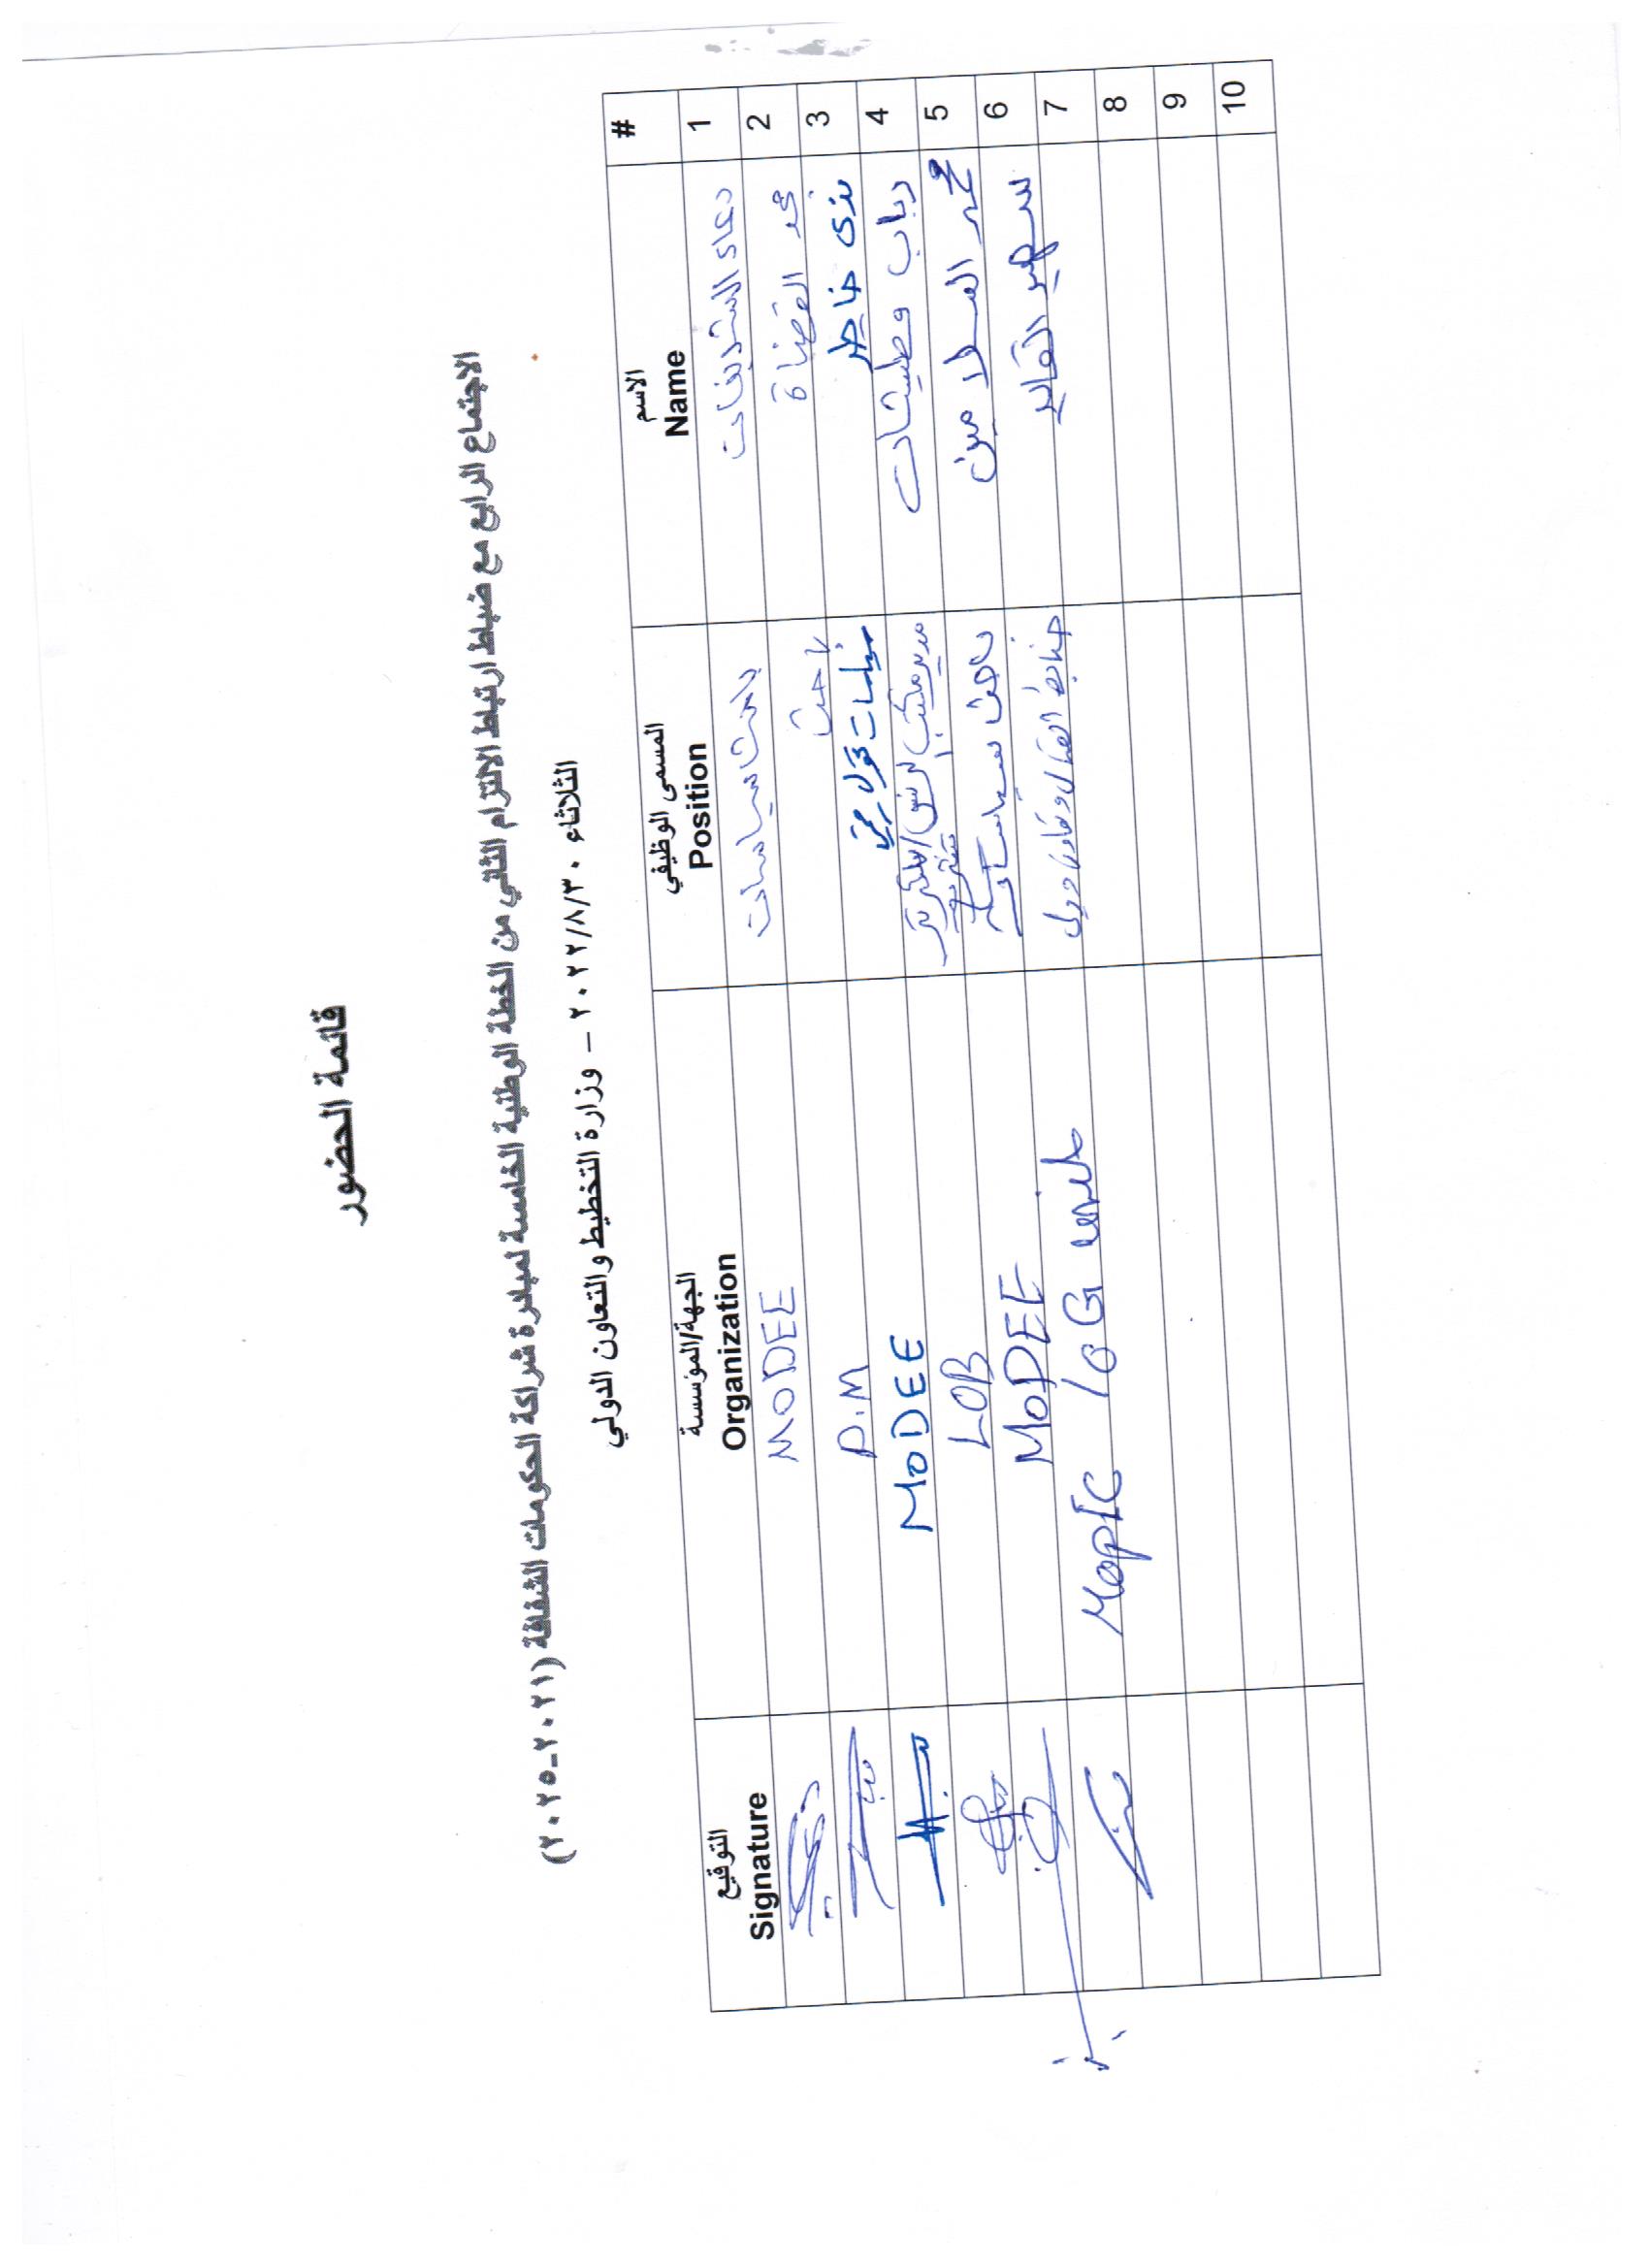 قائمة الحضور
الاجتماع الرابع مع ضباط ارتباط الالتزام الثاني من الخطة الوطنية الخامسة لمبادرة شراكة الحكومات الشفافة (٢٠٢١-٢٠٢٥)
الثلاثاء ٢٠٢٢/٨/٣٠ – وزارة التخطيط والتعاون الدولي
# الاسم Name المسمى الوظيفي Position الجهة/المؤسسة Organization التوقيع Signature
1 دعاء باحث سياسات MODEE
2 محمد القضاة باحث P.M
3 ندى خاطر سياسات تحول رقمي MODEE
4 رباب وطيشات مدير مكتب LOB
5 محمد السلامين باحث سياسات MODEE
6 سهير القايد ضابط اتصال وتعاون دولي MOPIC / OG unit
7
8
9
10